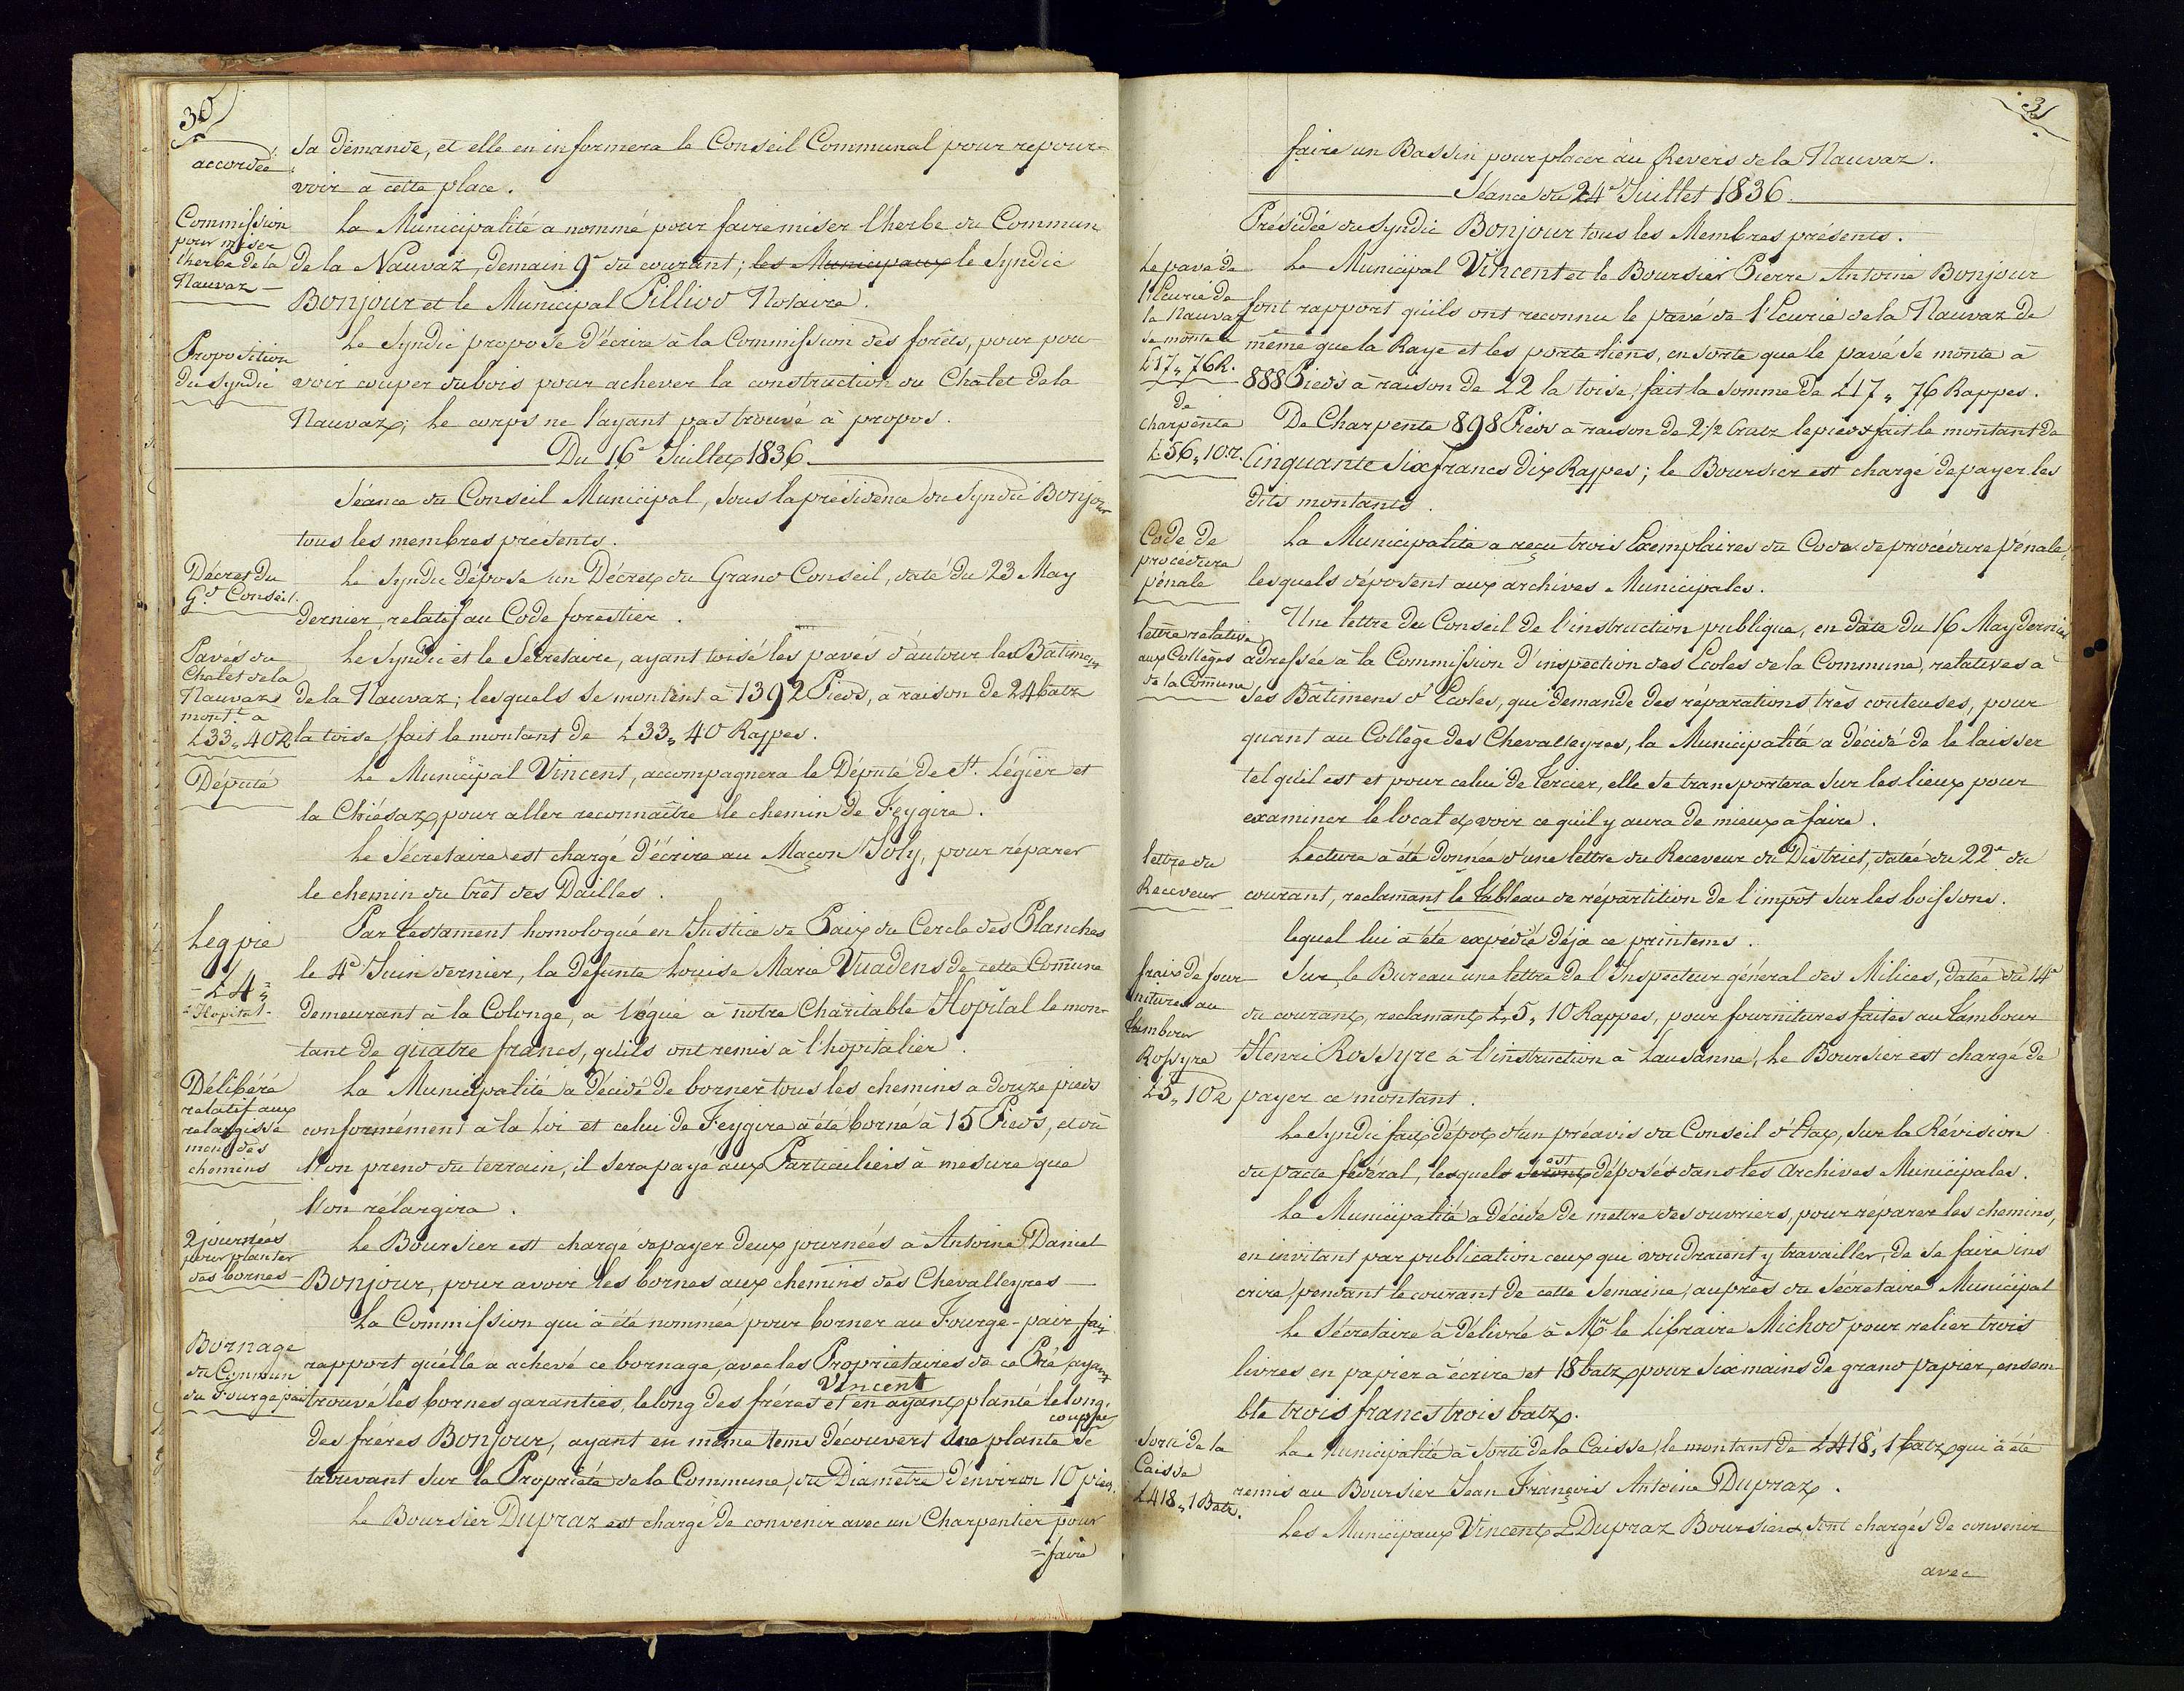 30
accordée
sa demande, et elle en informera le Conseil Communal pour repour-
voir à cette place.
Commission
pour miser
l'herbe de la
Nauvaz
La Municipalité a nommé pour faire miser l'herbe du Commun
de la Nauvaz, demain 9e du courant; les Municipaux le Syndic
Bonjour et le Municipal Pilliod Notaire.
Proposition
du Syndic
Le Syndic propose d'écrire à la Commission des forêts, pour pou-
voir couper du bois pour achever la construction du Chalet de la
Nauvaz; Le corps ne l'ayant pas trouvé à propos.
Du 16e Juillet 1836.
Séance du Conseil Municipal, sous la présidence du Syndic Bonjour
tous les membres présents.
Décret du
Gd Conseil.
Le Syndic dépose un Décret du Grand Conseil, daté du 23 May
dernier, relatif au Code forestier.
Pavés du
Chalet de la
Nauvaz
montt à
£33„40R
Le Syndic et le Sécretaire, ayant toisé les pavés d'autour les Bâtimens
de la Nauvaz; lesquels se montent à 1392 Pieds, à raison de 24 batz
la toise, fait le montant de £33„40 Rappes.
Député
Le Municipal Vincent, accompagnera le Député de St. Légier et
la Chiésaz pour aller reconnaître le chemin de Feygire.
Le Sécretaire est chargé d'écrire au Maçon Joly, pour réparer
le chemin du Crêt des Dailles.
Leg pie
£4
Hopital
Par Testament homologué en Justice de Paix du Cercle des Planches
le 4e Juin dernier, la défunte Louise Marie Vuadens de cette Comune
demeurant à la Colonge, a légué à notre Charitable Hopital le mon-
tant de quatre francs, qu'ils ont remis à l'hopitalier.
Délibéré
relatif aux
relargisse
ment des
chemins
La Municipalité a décidé de borner tous les chemins à douze pieds
conformément à la Loi et celui de Feygire a été borné à 15 Pieds, et où
l'on prend du terrain, il sera payé aux Particuliers à mesure que
l'on rélargira.
2 journées
pour planter
des bornes
Le Boursier est chargé de payer deux journées à Antoine Daniel
Bonjour, pour avoir les bornes aux chemins des Chevalleyres
Bornage
du Commun
du Fourge pair
La Commission qui a été nommée pour borner au Fourge-pair fait
rapport qu'elle a achevé ce bornage, avec les Propriétaires de ce Pré, ayant
trouvé les bornes garanties, le long des fréres Vincent et en ayant planté le long
des fréres Bonjour, ayant en même tems découvert une plante coupée se
trouvant sur la Propriété de la Commune, du Diamètre d'environ 10 pieds.
Le Boursier Dupraz est chargé de convenir avec un Charpentier pour
=faire
31
faire un Bassin pour placer au Revers de la Nauvaz.
Séance du 24e Juillet 1836.
Présidée du Syndic Bonjour tous les Membres présents.
Le pavé de
l'Ecurie de
la Nauvaz
se monte à
£17„76R.
Le Municipal Vincent et le Boursier Pierre Antoine Bonjour
font rapport qu'ils ont reconnu le pavé de l'Ecurie de la Nauvaz de
même que la Raye et les porte liens, en sorte que le pavé se monte à
888 Pieds à raison de 22 la toise, fait la somme de £17„76 Rappes.
de
charpente
£56„10r.
De Charpente 898 Pieds à raison de 2 1/2 Cratz le pied fait le montant de
Cinquante six francs dix Rappes; le Boursier est chargé de payer les
dits montants.
Code de
procédure
pénale
La Municipalité a reçu trois Exemplaires du Code de procédure pénale,
lesquels déposent aux archives Municipales.
lettre relative
aux Collèges
de la Comune
Une lettre du Conseil de l'instruction publique, en date du 16 May dernier
adressée à la Commission d'inspection des Ecoles de la Commune, relatives à
ses Bâtimens d'Ecoles, qui demande des réparations très couteuses, pour
quant au Collège des Chevalleyres, la Municipalité a décidé de le laisser
tel qu'il est et pour celui de Tercier, elle se transportera sur les lieux pour
examiner le local et voir ce qu'il y aura de mieux à faire.
lettre du
Receveur
Lecture a été donnée d'une lettre du Receveur du District, datée du 22e du
courant, reclamant le Tableau de répartition de l'impôt sur les boissons.
lequel lui a été expédié déja ce printems.
frais de four
nitures au
Tambour
Rossyre
£5„10R
Sur le Bureau une lettre de l'Inspecteur général des Milices, datée du 14e
du courant, reclamant £5„10 Rappes, pour fournitures faites au Tambour
Henri Rossyre à l'instruction à Lausanne, Le Boursier est chargé de
payer ce montant.
Le Syndic fait dépot d'un préavis du Conseil d'Etat, sur la Révision
du pacte fedéral, lesquels seront est déposés dans les Archives Municipales.
La Municipalité a décidé de mettre des ouvriers, pour réparer les chemins,
en invitant par publication ceux qui voudraient y travailler, de se faire ins
crire pendant le courant de cette semaine, auprès du Sécretaire Municipal
Le Sécretaire a délivré à Mr le Libraire Michod pour relier trois
livres en papier à écrire et 18 batz pour six mains de grand papier, ensem-
ble trois francs trois batz.
Sorti de la
Caisse
£418„1 Batz.
La Municipalité a sorti de la Caisse, le montant de £418„1 batz qui a été
remis au Boursier Jean François Antoine Dupraz.
Les Municipaux Vincent & Dupraz Boursier, sont chargés de convenir
avec